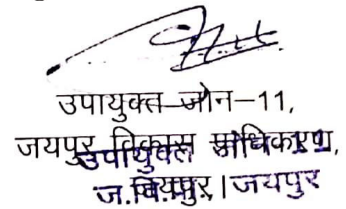 उपायुक्त जोन-11,
जयपुर विकास प्राधिकरण,
उपायुक्त जोन-11,
ज.वि.प्रा., जयपुर
जयपुर